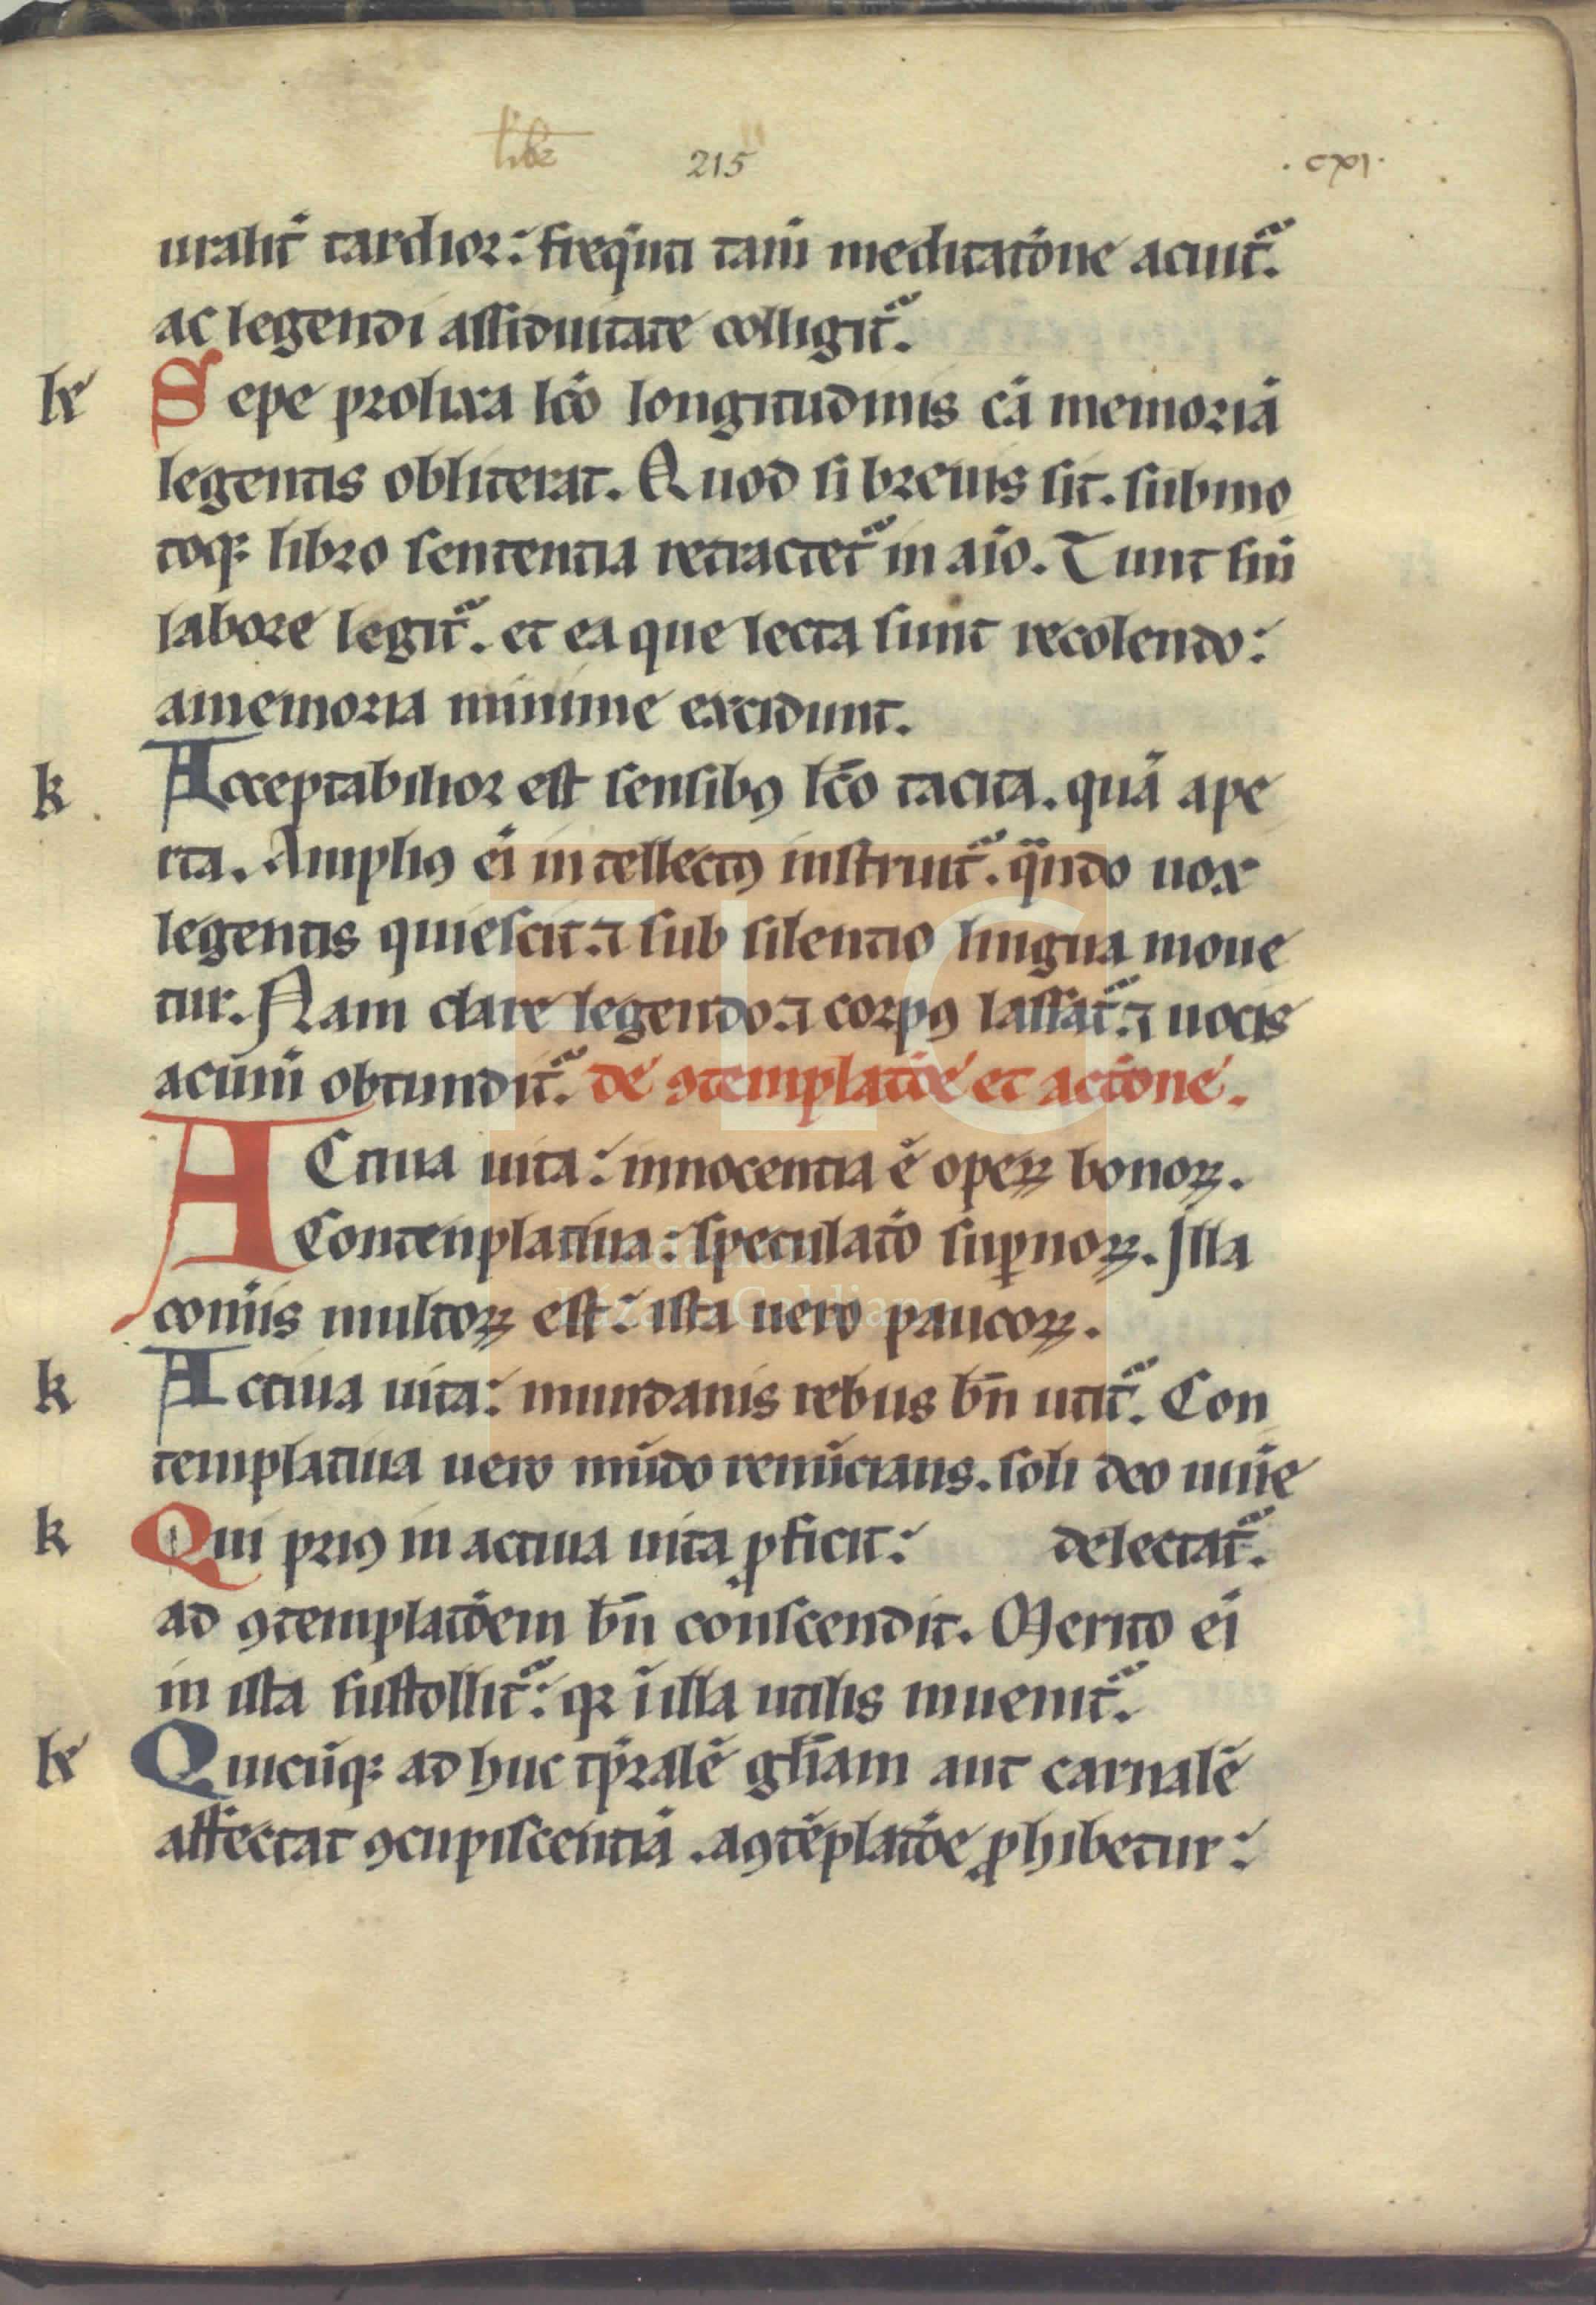 libr̄
215
.cxi.
uralit̄ tardior: freq̄nti tam̄ meditatōne acuit᷑.
ac legendi assiduitate colligit᷑.
k Sepe prolixa lcō longitudinis cā memoriā
legentis obliterat. Quod si breuis sit. submo
toq; libro sententia retractet᷑ in aīo. Tunt sin̄
labore legit᷑. et ea que lecta sunt recolendo:
amemoria minime excidunt.
k Acceptabilior est sensibꝰ lcō tacita. quā ape
rta. Ampliꝰ eī intellectꝰ instruit᷑. qᷓndo uox
legentis quiescit. ⁊ sub silentio lingua moue
tur. Nam clare legendo. ⁊ corpꝰ lassat᷑. ⁊ uocis
acum̄ obtundit᷑. de ꝯtemplatiōe et actione.
ACtiua uita: innocentia ē operꝝ bonoꝝ.
Contenplatiua: speculatō suꝑnoꝝ. Illa
com̄is multoꝝ est: ista uero paucoꝝ.
k Actiua uita: mundanis rebus bn̄ utit᷑. Con
templatiua uero mūdo renūcians. soli deo uiuē
k Qui priꝰ in actiua uita ꝓficit: delectat᷑.
ad ꝯtemplatōem bn̄ conscendit. Merito eī
in ista sustollit᷑: qꝛ ī illa utilis inuenit᷑.
k Quicūq; ad huc tp̄ralē gl̄iam aut carnalē
affectat ꝯcupiscentiā. aꝯtēplatōe ꝓhibetur:
FLG
Fundación
Lázaro Galdiano